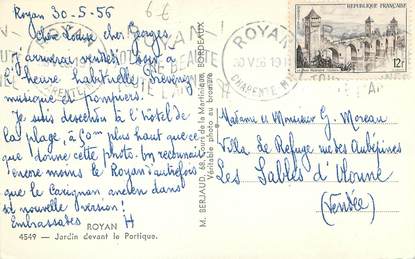 Royan 30-5-56
6-E
Chère Louise, cher Georges
J'arriverai vendredi soir à
l'heure habituelle. Prévenez
musique et pompiers.
Je suis descendu à l'hôtel de
la plage, à 50m plus haut que ce
que donne cette photo. On reconnait
encore moins le Royan d'autrefois
que le Carignan ancien dans
sa nouvelle version!
Embrassades H
ROYAN
4549 - Jardin devant le Portique.
M. BERJAUD, 68, Cours de la Martinique, BORDEAUX
Véritable photo au bromure
ROYAN
30 V 56
CHARENTE
RÉPUBLIQUE FRANÇAISE
12F
Madame et Monsieur G. Moreau
Villa Le Refuge rue des Aubépines
Les Sables d'Olonne
(Vendée)